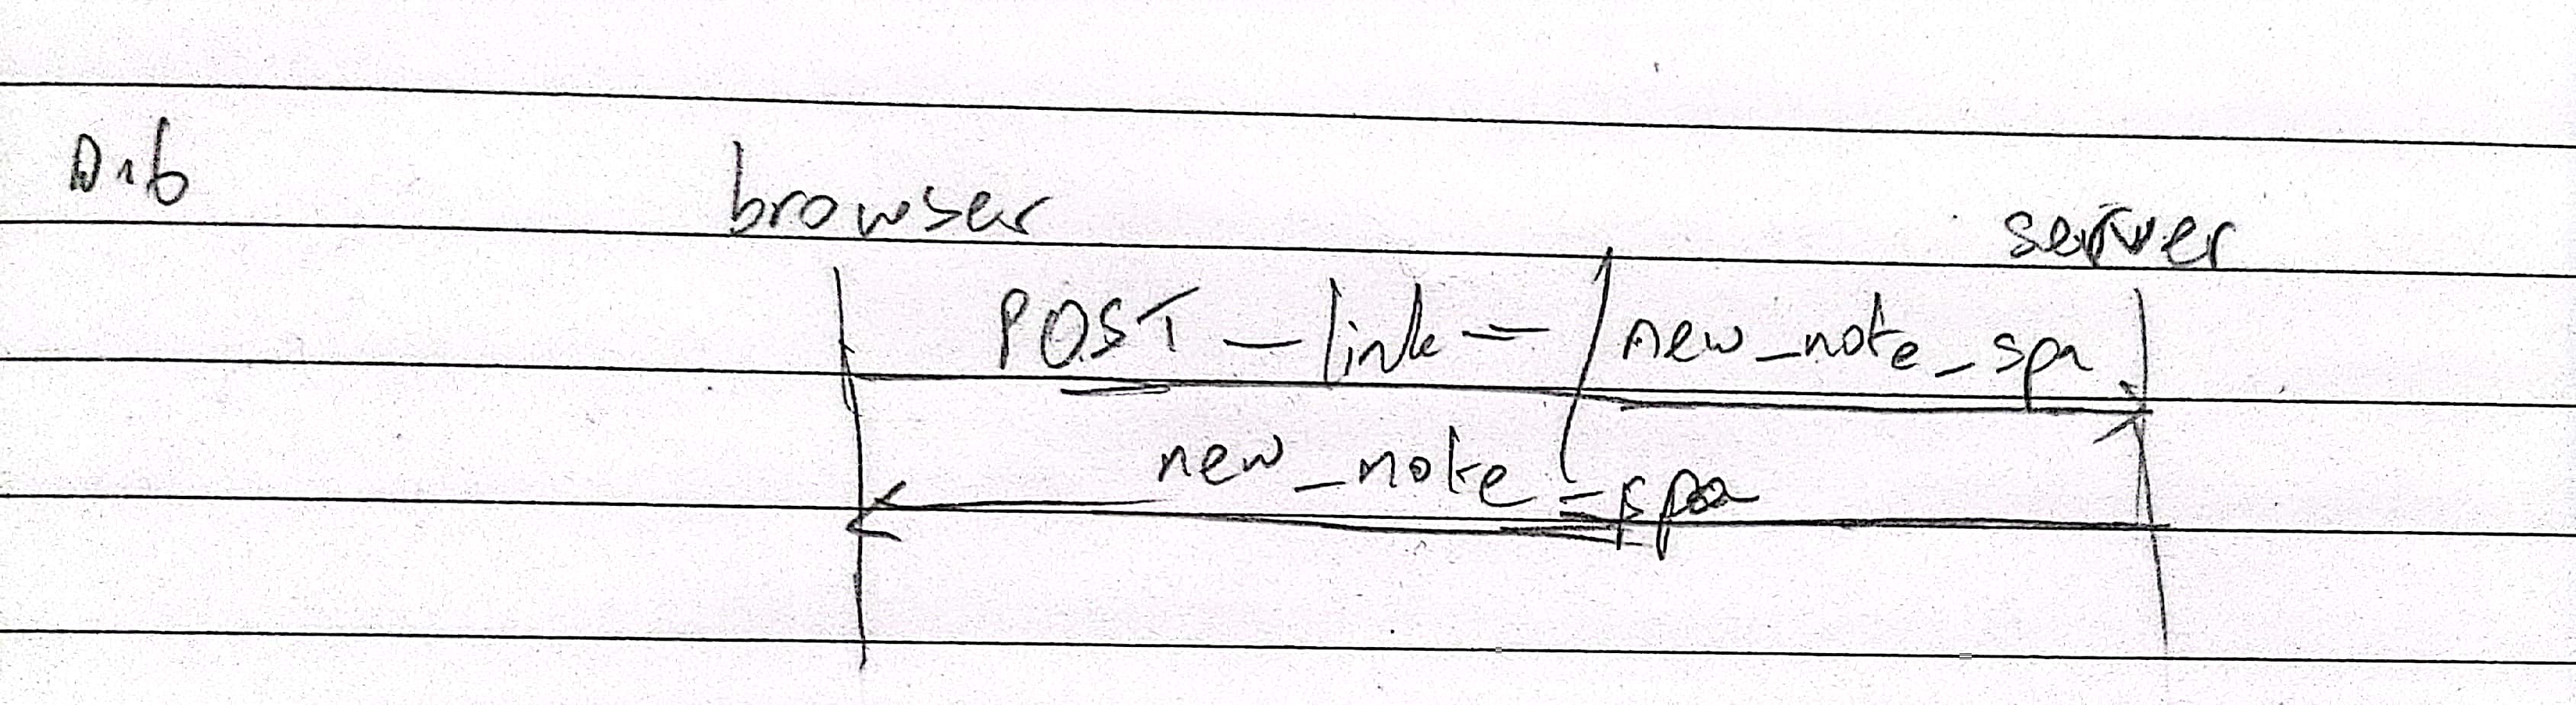 0.6
browser server
POST —link— /new_note_spa
new_note_spa